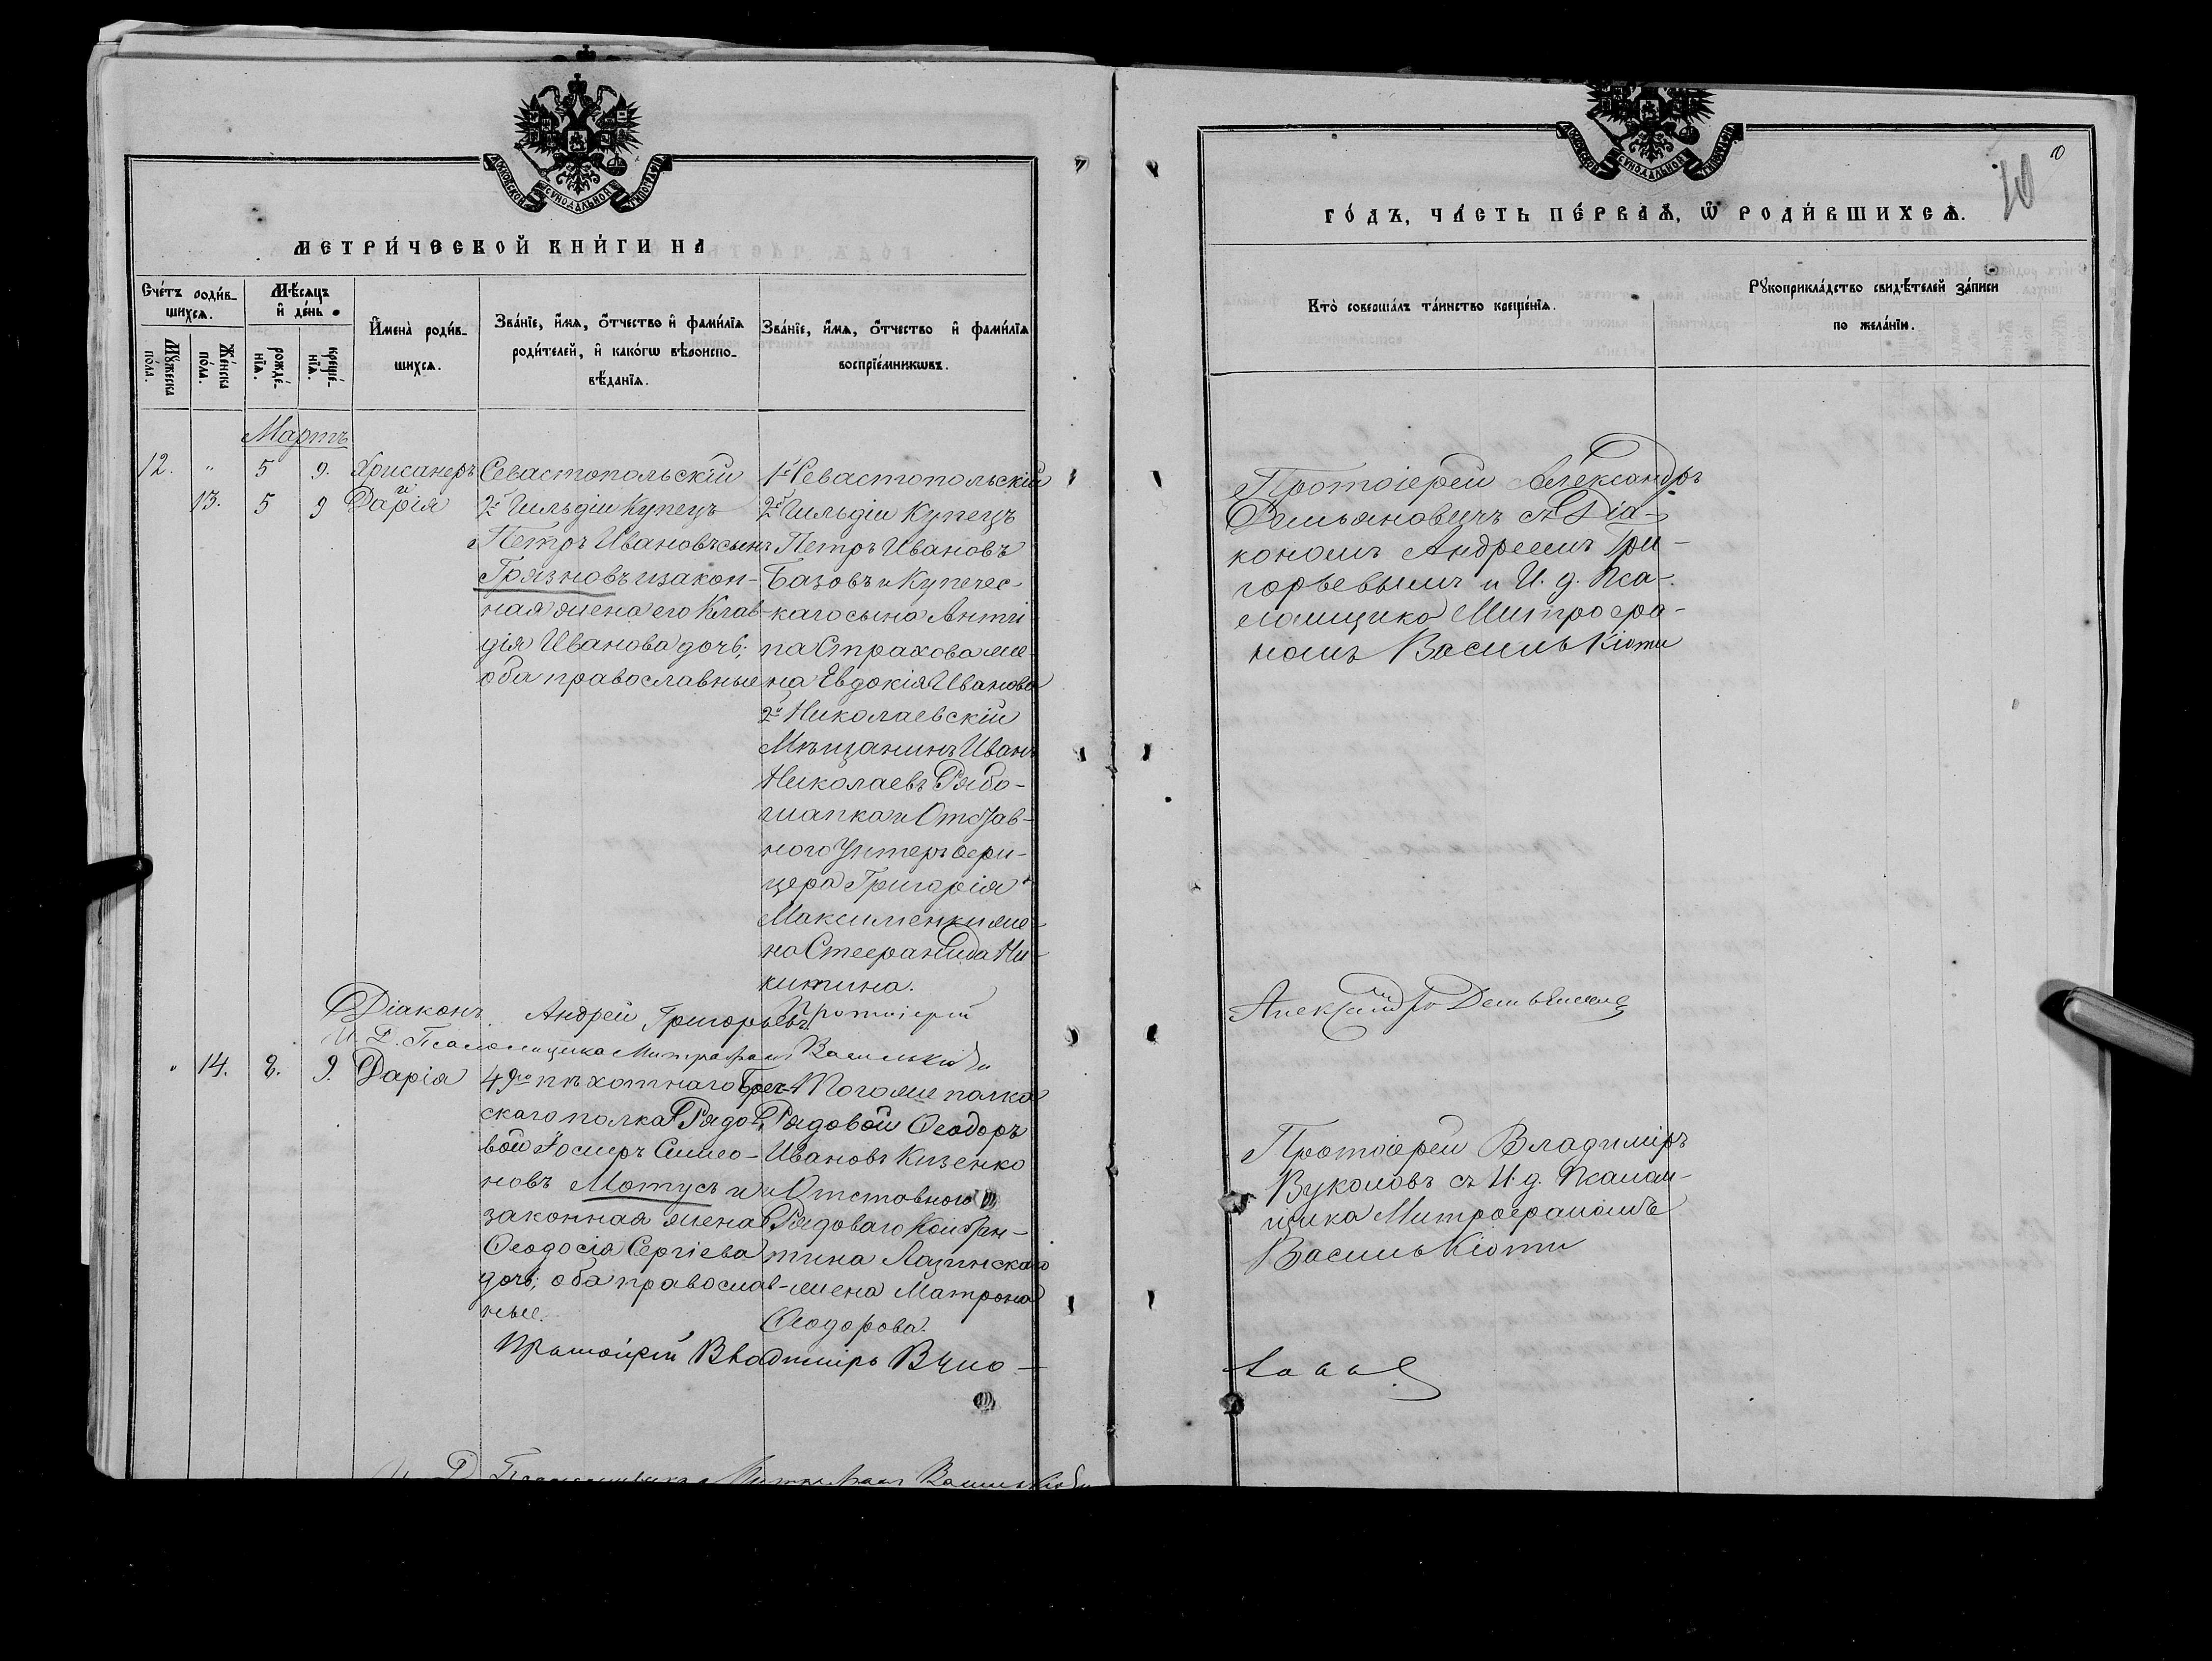 МОСКОВСКОЙ СѴНОДАЛЬНОЙ ТИПОГРАФІИ
МЕТРИ́ЧЕСКОЙ КНИ́ГИ НА
Сче́тъ роди́в-
шихсѧ.
Мꙋ́жеска
по́ла.
Же́нска
по́ла.
Мѣ́сѧцъ
и҆ де́нь
рожде́-
нїѧ.
креще́-
нїѧ.
И҆мена̀ роди́в-
шихсѧ.
Зва́нїе, и҆́мѧ, ѻ҆́тчество и҆ фами́лїѧ
роди́телей, и҆ како́гѡ вѣроиспо-
вѣ́данїѧ.
Зва́нїе, и҆́мѧ, ѻ҆́тчество и҆ фами́лїѧ
воспрїе́мникѡвъ.
Мартъ
12. " 5 9. Хрисанѳъ
и
13. 5 9 Дарія
Севастопольскій
2й Гильдіи Купецъ
Петръ Ивановъ сынъ
Грязновъ и закон-
ная жена его Клав-
дія Иванова дочь;
оба православные
1й Севастопольскій
2й Гильдіи Купецъ
Петръ Ивановъ
Базовъ и Купечес-
каго сына Анти
па Страхова же-
на Евдокія Иванова
2й Николаевскій
Мѣщанинъ Иванъ
Николаевъ Рябо-
шапка и Отстав-
ного Унтеръ офи-
цера Григорія
Максименки же-
на Стефанида Ни-
китина.
Діаконъ Андрей Григорьевъ Протоіерей
И. Д. Псаломщика Митрофанъ Василькіоти
" 14. 8. 9. Дарія
49го пѣхотнаго Брест-
скаго полка Рядо-
вой Іосифъ Симео-
новъ Мотусъ и
законная жена
Ѳеодосія Сергіева
дочь; оба православ-
ные.
Того же полка
Рядовой Ѳеодоръ
Ивановъ Кизенко
и Отставного
Рядоваго Констан-
тина Лазинскаго
жена Матрона
Ѳеодорова.
Протоіерей Владиміръ Вуко-
И. Д. Псаломщика Митрофанъ Василькіоти
10
МОСКОВСКОЙ СѴНОДАЛЬНОЙ ТИПОГРАФІИ
ГО́ДЪ, ЧА́СТЬ ПЕ́РВАѦ, Ѽ РОДИ́ВШИХСѦ.
Кто̀ соверша́лъ та́инство креще́нїѧ.
Рꙋкоприкла́дство свидѣ́телей за́писи
по жела́нїю.
Протоіерей Александръ
Демьяновичъ съ Діа-
кономъ Андреемъ Гри-
горьевымъ и И. д. Пса-
ломщика Митрофа-
номъ Василькіоти
Александръ Демьяновичъ
Протоіерей Владиміръ
Вуколовъ съ И. д. Псалом-
щика Митрофаномъ
Василькіоти
ловъ